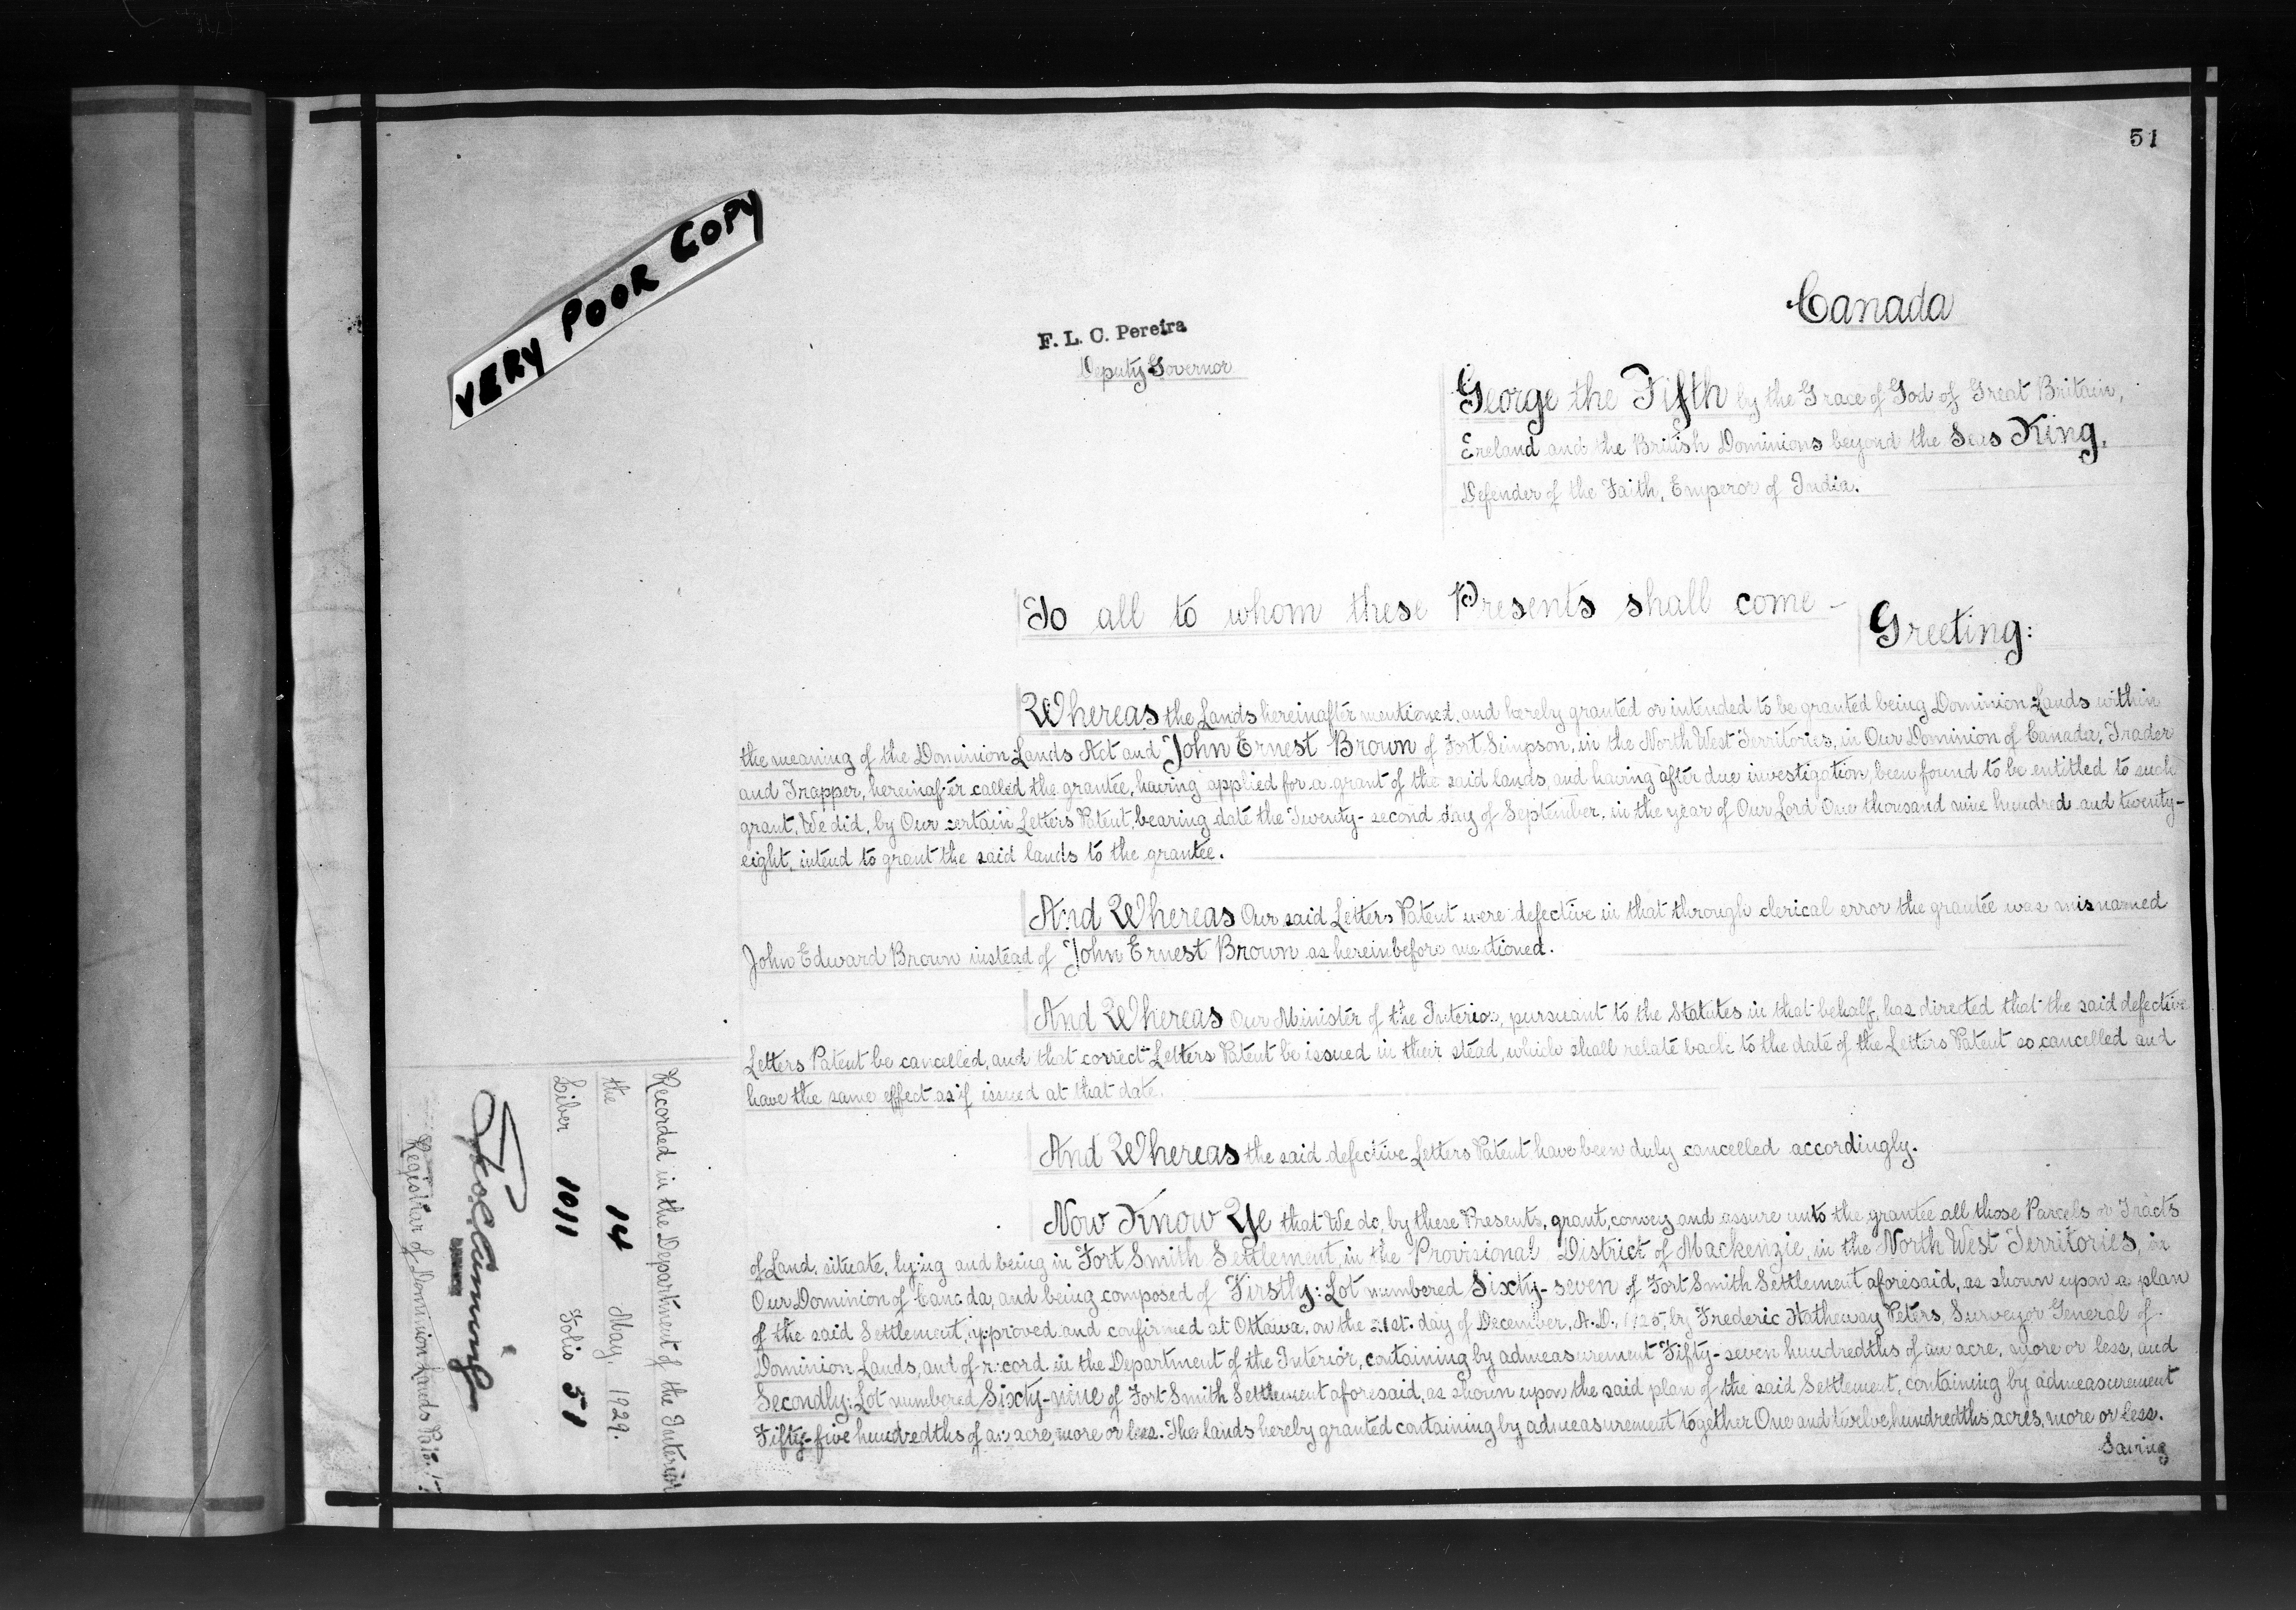 51
VERY POOR COPY
Canada
F. L. C. Pereira
Deputy Governor
George the Fifth by the Grace of God of Great Britain,
Ireland and the British Dominions beyond the Seas King,
Defender of the Faith, Emperor of India.
To all to whom these Presents shall come –
Greeting:
Whereas the Lands hereinafter mentioned, and hereby granted or intended to be granted being Dominion Lands within
the meaning of the Dominion Lands Act and John Ernest Brown of Fort Simpson, in the North West Territories, in Our Dominion of Canada, Trader
and Trapper, hereinafter called the grantee, having applied for a grant of the said lands, and having after due investigation, been found to be entitled to such
grant, We did, by Our certain Letters Patent, bearing date the Twenty-second day of September, in the year of Our Lord One thousand nine hundred and twenty-
eight, intend to grant the said lands to the grantee.
And Whereas Our said Letters Patent were defective in that through clerical error the grantee was misnamed
John Edward Brown instead of John Ernest Brown as hereinbefore mentioned.
And Whereas Our Minister of the Interior, pursuant to the Statutes in that behalf, has directed that the said defective
Letters Patent be cancelled, and that correct Letters Patent be issued in their stead, which shall relate back to the date of the Letters Patent so cancelled and
have the same effect as if issued at that date.
And Whereas the said defective Letters Patent have been duly cancelled accordingly.
Now Know Ye that We do, by these Presents, grant, convey and assure unto the grantee all those Parcels or Tracts
of Land, situate, lying and being in Fort Smith Settlement, in the Provisional District of Mackenzie, in the North West Territories, in
Our Dominion of Canada, and being composed of Firstly: Lot numbered Sixty-seven of Fort Smith Settlement aforesaid, as shown upon a plan
of the said Settlement, approved and confirmed at Ottawa, on the 21st. day of December, A.D., 1925, by Frederic Hatheway Peters, Surveyor General of
Dominion Lands, and of record in the Department of the Interior, containing by admeasurement Fifty-seven hundredths of an acre, more or less, and
Secondly: Lot numbered Sixty-nine of Fort Smith Settlement aforesaid, as shown upon the said plan of the said Settlement, containing by admeasurement
Fifty-five hundredths of an acre, more or less. The lands hereby granted containing by admeasurement together One and twelve hundredths acres, more or less.
Saving
Recorded in the Department of the Interior
the 14 May, 1929.
Liber 1011 Folio 51
Registrar of Dominion Lands